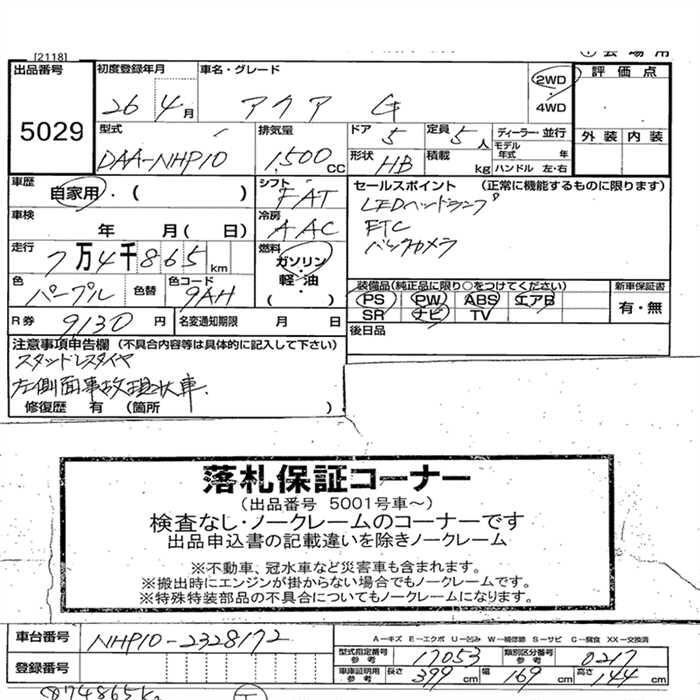 [2118]
出品番号 5029
初度登録年月 26 4月
車名・グレード アクア G
2WD・4WD
評価点
型式 DAA-NHP10
排気量 1,500 CC
ドア 5
定員 5人
ディーラー・並行
モデル年式 年
外装 内装
形状 HB
積載 kg
ハンドル 左・右
車歴 自家用・( )
シフト FAT
セールスポイント (正常に機能するものに限ります)
LEDヘッドランプ
ETC
バックカメラ
車検 年 月( 日)
冷房 AAC
走行 7万4千865km
燃料 ガソリン・軽油( )
色 パープル
色替
色コード 9AH
装備品(純正品に限り○をつけてください)
PS PW ABS エアB
SR ナビ TV
新車保証書 有・無
R券 9130円
名変通知期限 月 日
後日品
注意事項申告欄 (不具合内容等は具体的に記入して下さい)
スタッドレスタイヤ
左側面事故現状車.
修復歴 有 (箇所 )
落札保証コーナー
(出品番号 5001号車~)
検査なし・ノークレームのコーナーです
出品申込書の記載違いを除きノークレーム
※不動車、冠水車など災害車も含まれます。
※搬出時にエンジンが掛からない場合でもノークレームです。
※特殊特装部品の不具合についてもノークレームになります。
車台番号 NHP10-2328172
A-キズ E-エクボ U-凹み W-補修跡 S-サビ C-腐食 XX-交換済
型式指定番号 参考 17053
類別区分番号 参考 0217
登録番号
車庫証明用 参考 長さ 399cm 幅 169cm 高さ 144cm
874865K